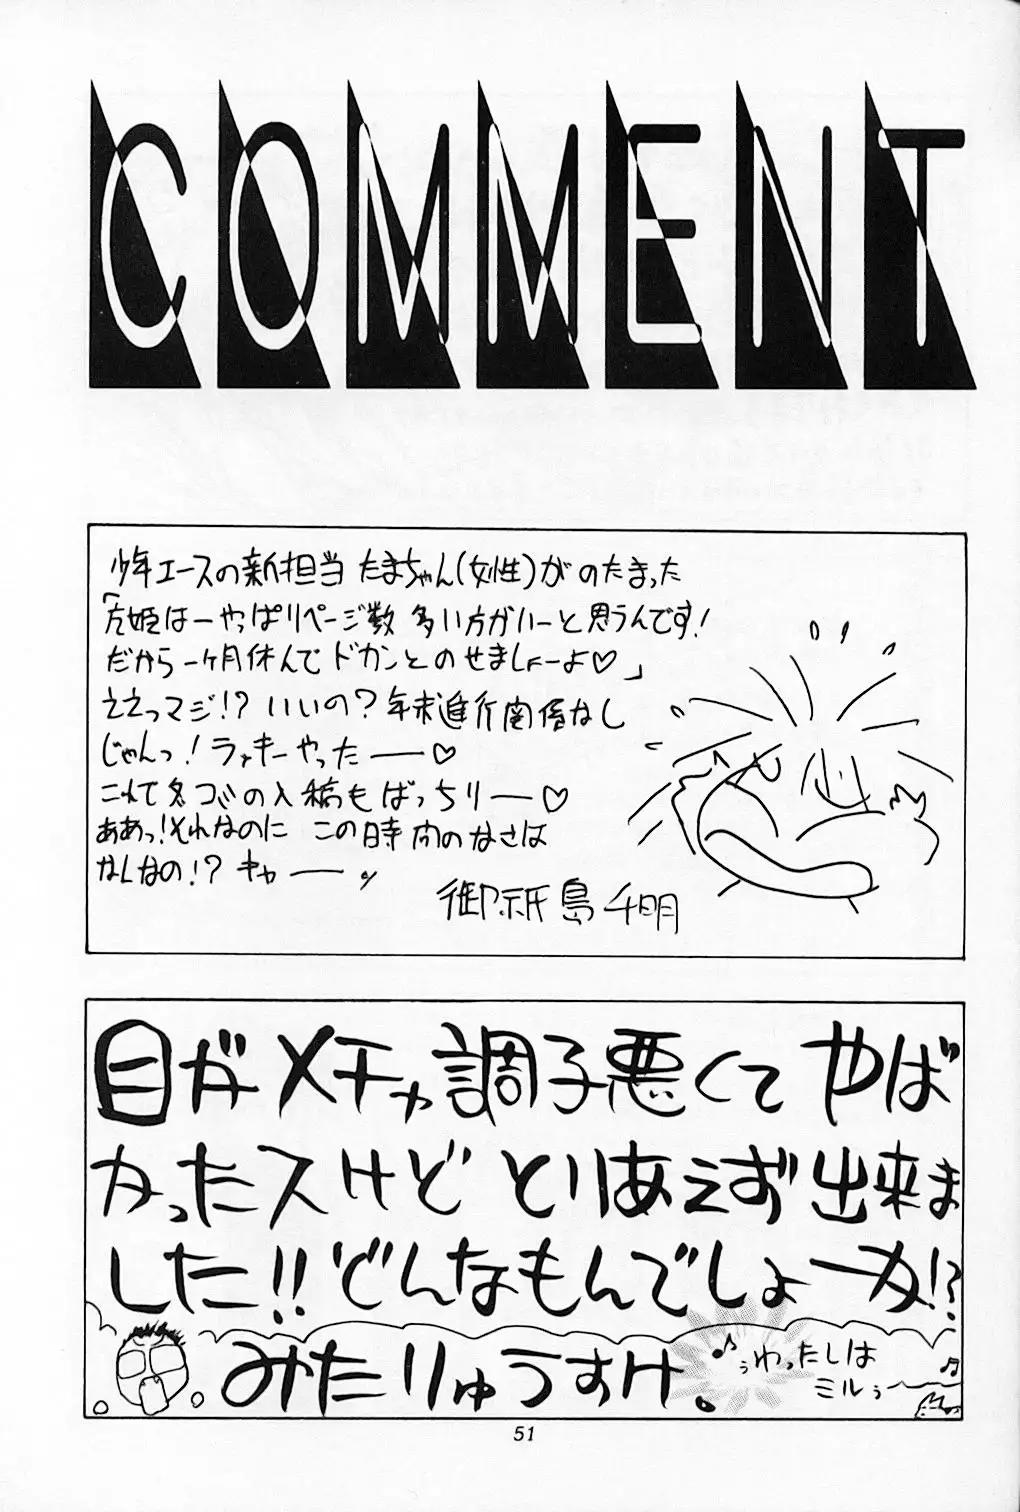 COMMENT
少年エースの新担当 たまちゃん(女性)がのたまった
「左姫はーやっぱりページ数 多い方がいーと思うんです!
だから一ヶ月休んで ドカンとのせましょーよ♡」
ええっマジ!? いいの?年末進行関係なし
じゃんっ!ラッキーやったー♡
これで冬コミの入稿もばっちりー♡
ああっ!それなのに この時間のなさは
なんなの!? キャー
御祇島千明
目がメチャ調子悪くて やば
かったスけど とりあえず出来ま
した!!どんなもんでしょーか!?
みたりゅうすけ。
♪ぅわったしは
ミルぅ〜♫
51